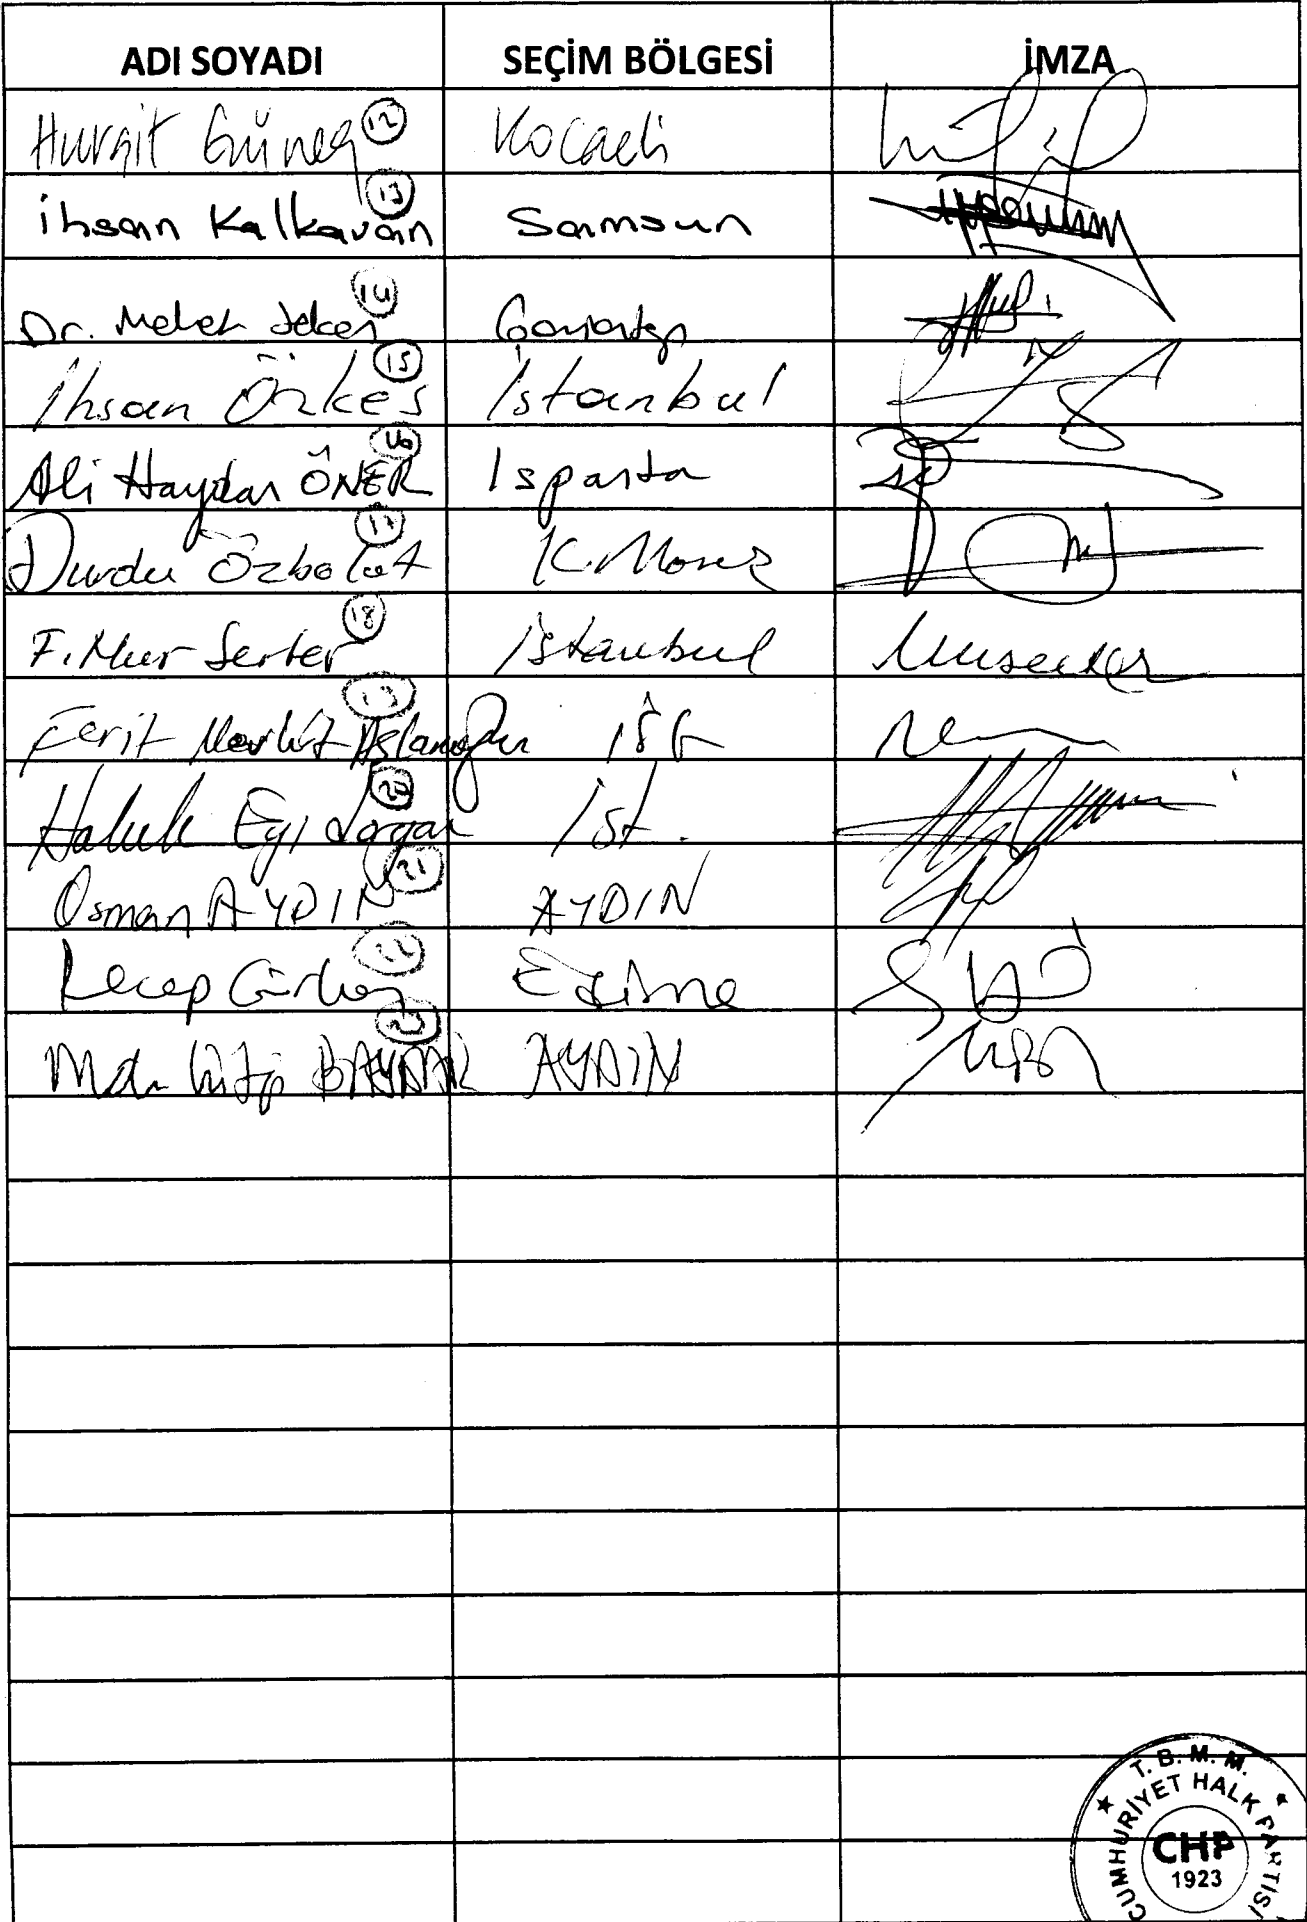 ADI SOYADI SEÇİM BÖLGESİ İMZA
Hurşit Güneş 12 Kocaeli
İhsan Kalkavan 13 Samsun
Dr. Mehmet Şeker 14 Gaziantep
İhsan Özkes 15 İstanbul
Ali Haydar ÖNER 16 Isparta
Durdu Özbolat 17 K.Maraş
F. Nur Serter 18 İstanbul
Ferit Mevlüt Aslanoğlu 19 İst
Haluk Eyidoğan 20 İst.
Osman AYDIN 21 AYDIN
Recep Gürkan 22 Edirne
Metin Lütfi BAYDAR 23 AYDIN
T. B. M. M.
CUMHURİYET HALK PARTİSİ
CHP
1923